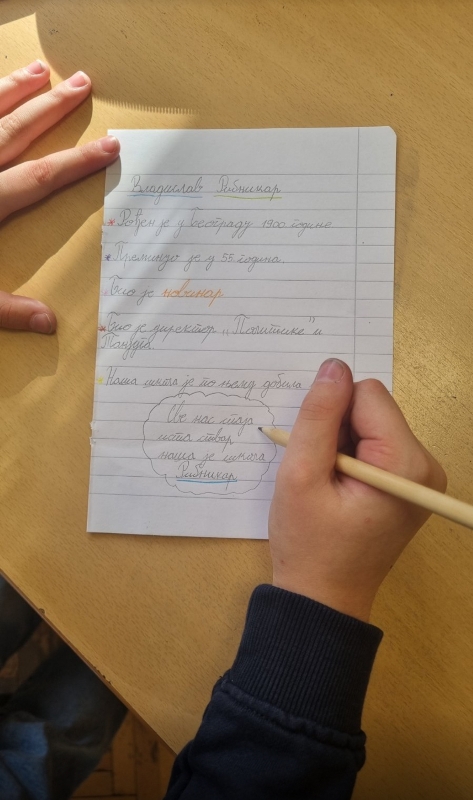 Владислав Рибникар
Рођен је у Београду 1900 године.
Преминуо је у 55 година.
Био је новинар
Био је директор „Политике" и
Танјуга.
Наша школа је по њему добила
Све нас спаја
иста ствар
наша је школа
Рибникар